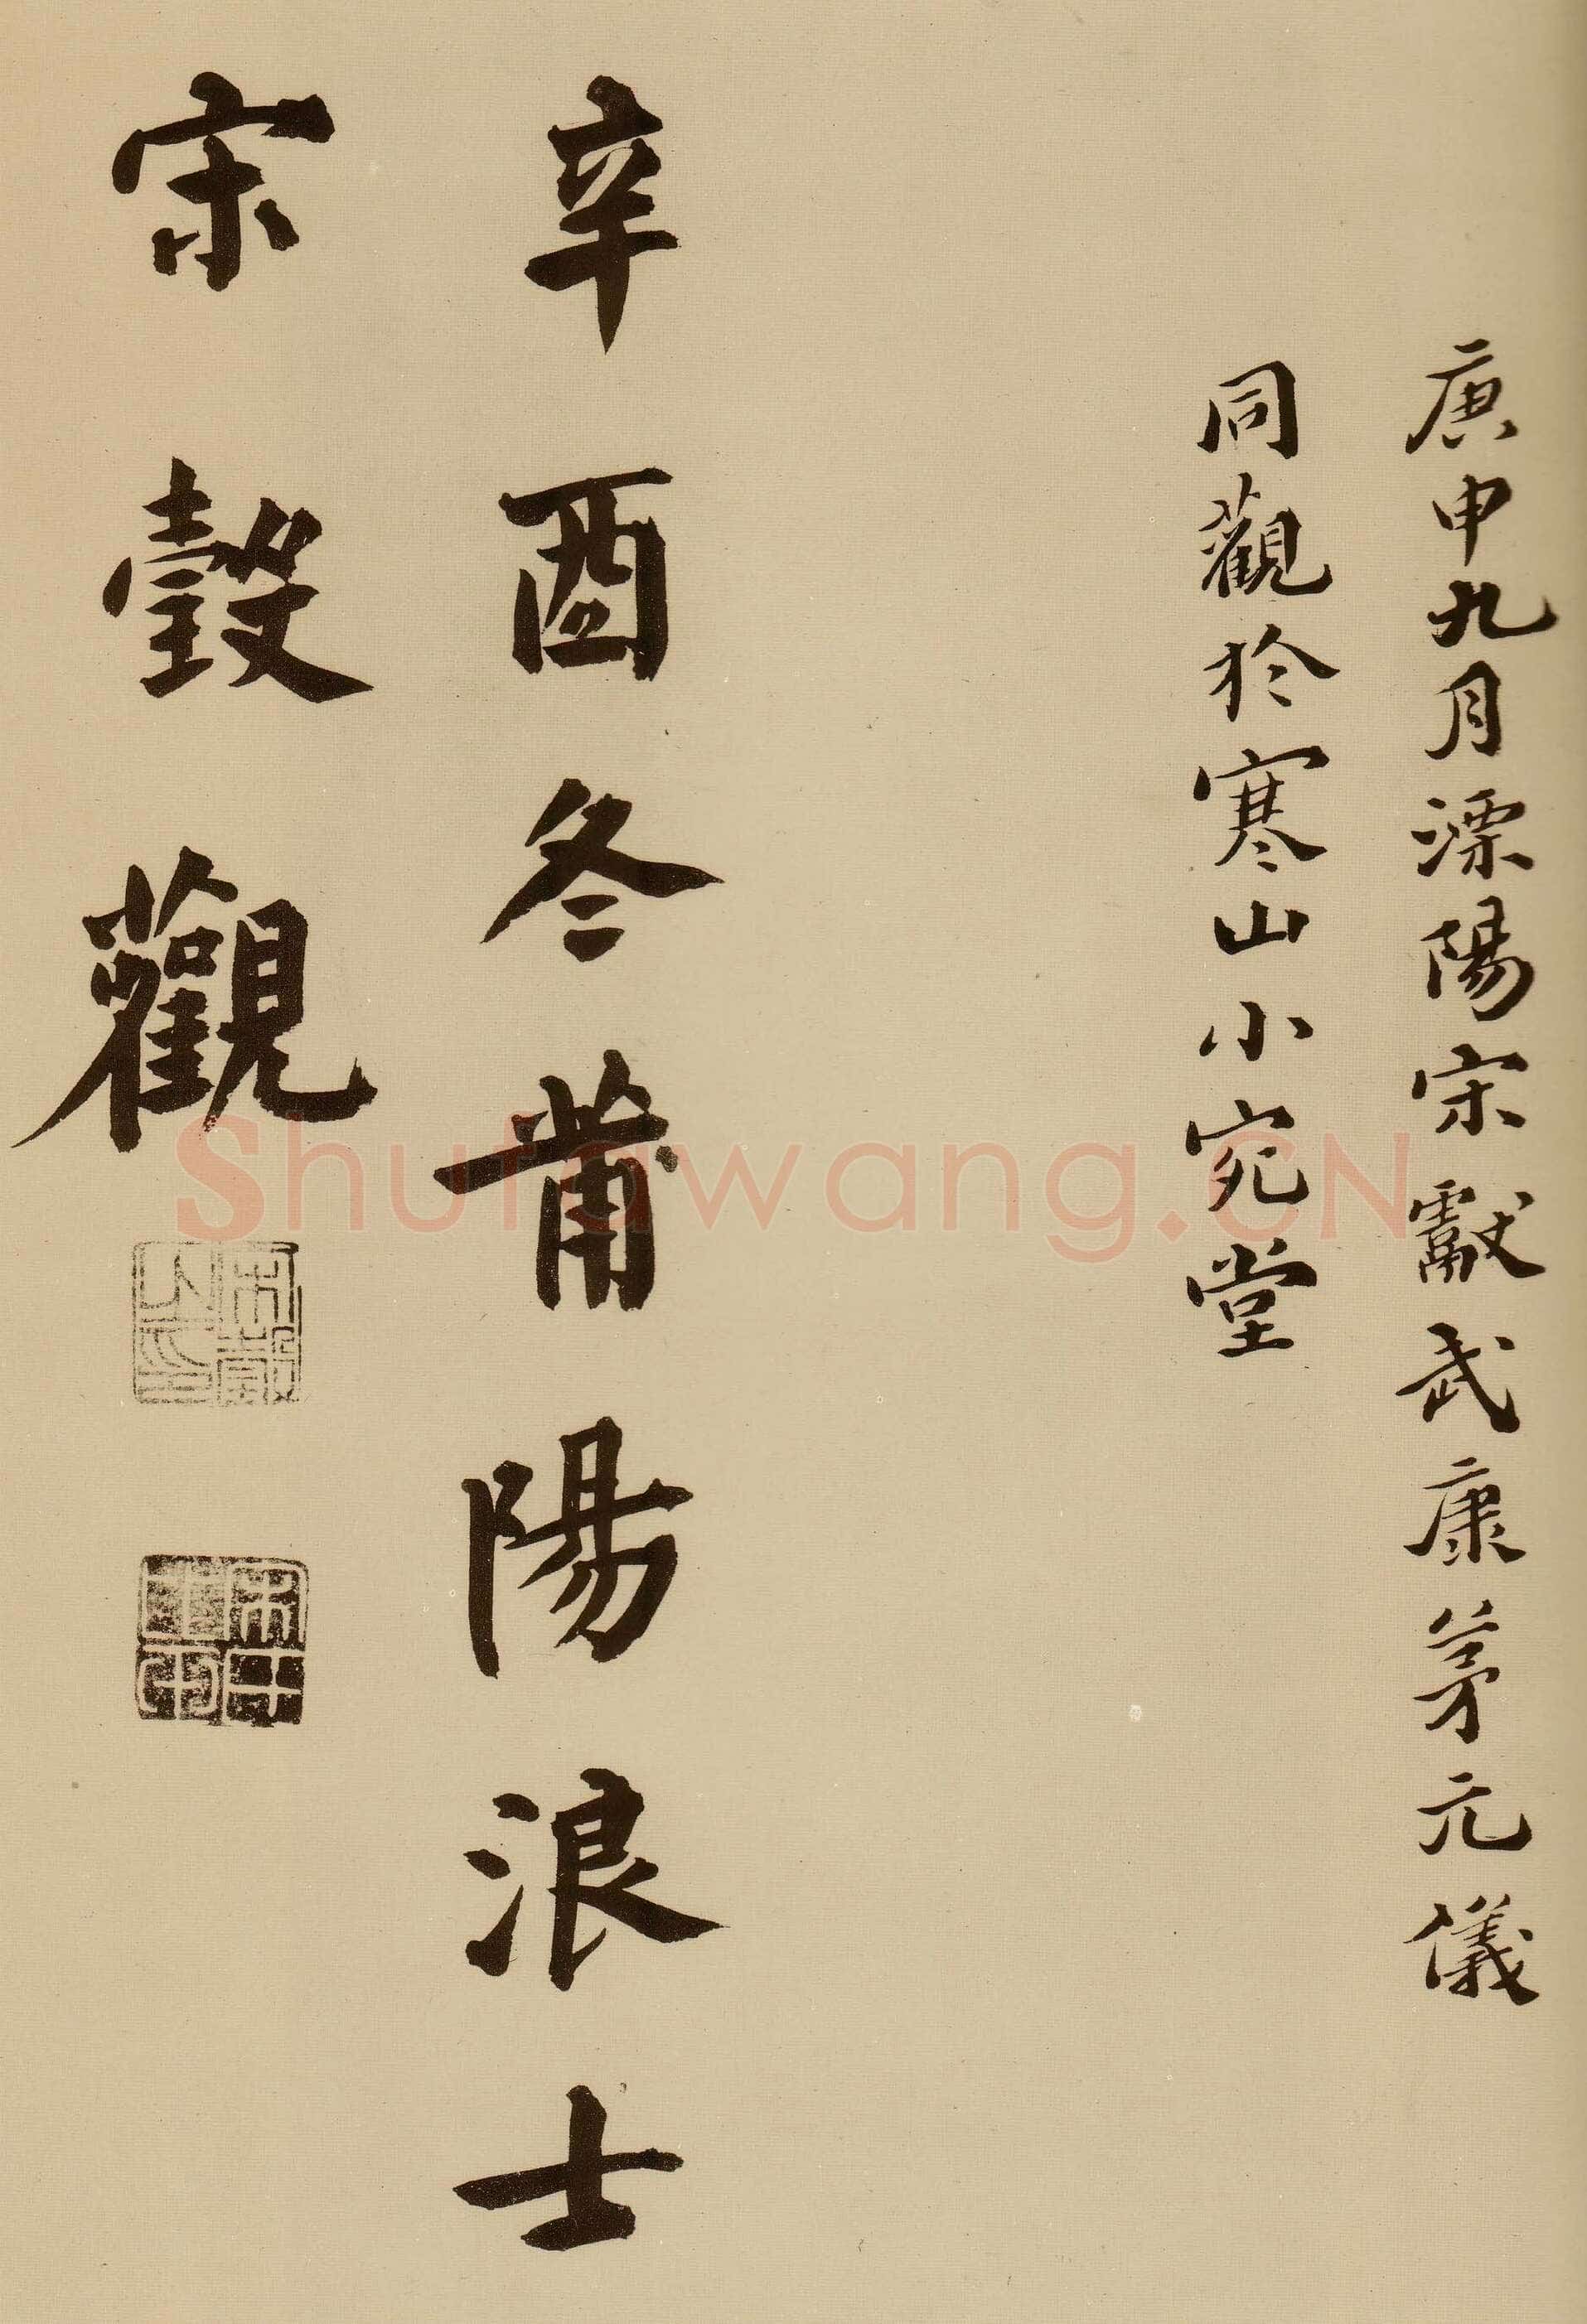 庚申九月溧陽宋獻武康茅元儀
同觀於寒山小宛堂
辛酉冬莆陽浪士
宋瑴觀
Shufawang.CN